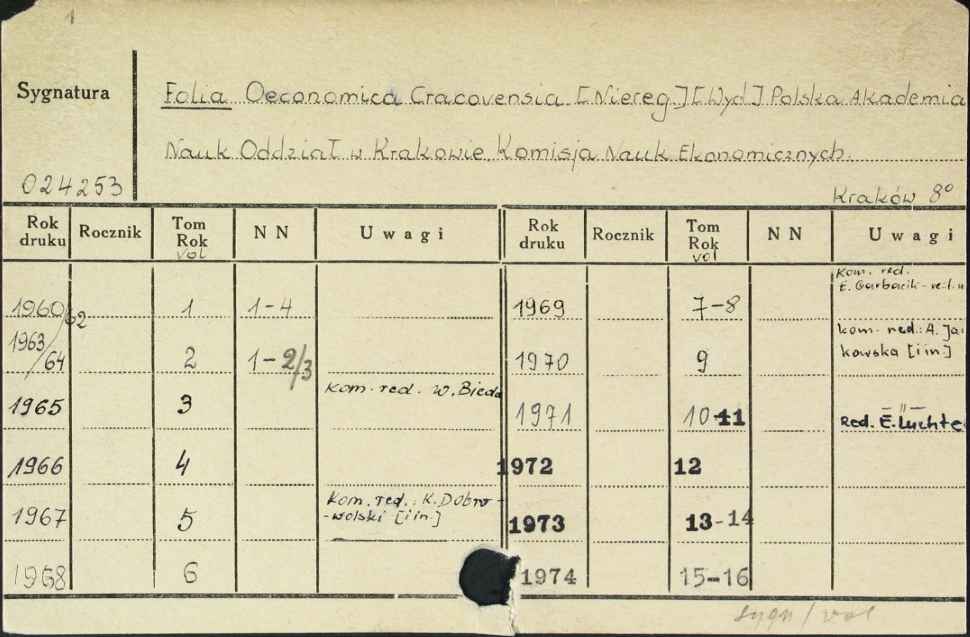 1
Sygnatura
Folia Oeconomica Cracovensia [Niereg.] [Wyd] Polska Akademia
Nauk Oddział w Krakowie Komisja Nauk Ekonomicznych.
024253
Kraków 8°
Rok druku Rocznik Tom Rok vol NN Uwagi Rok druku Rocznik Tom Rok vol NN Uwagi
1960/62 1 1-4 1969 7-8 Kom. red. E. Garbacik -
1963/64 2 1-2/3 1970 9 kom. red.: A. Ja kowska [i in]
1965 3 kom. red. W. Bieda 1971 10-11 — " — Red. E. Łuchte
1966 4 1972 12
1967 5 Kom. red.: K. Dobro- -wolski [i in.] 1973 13-14
1968 6 1974 15-16
sygn/vol